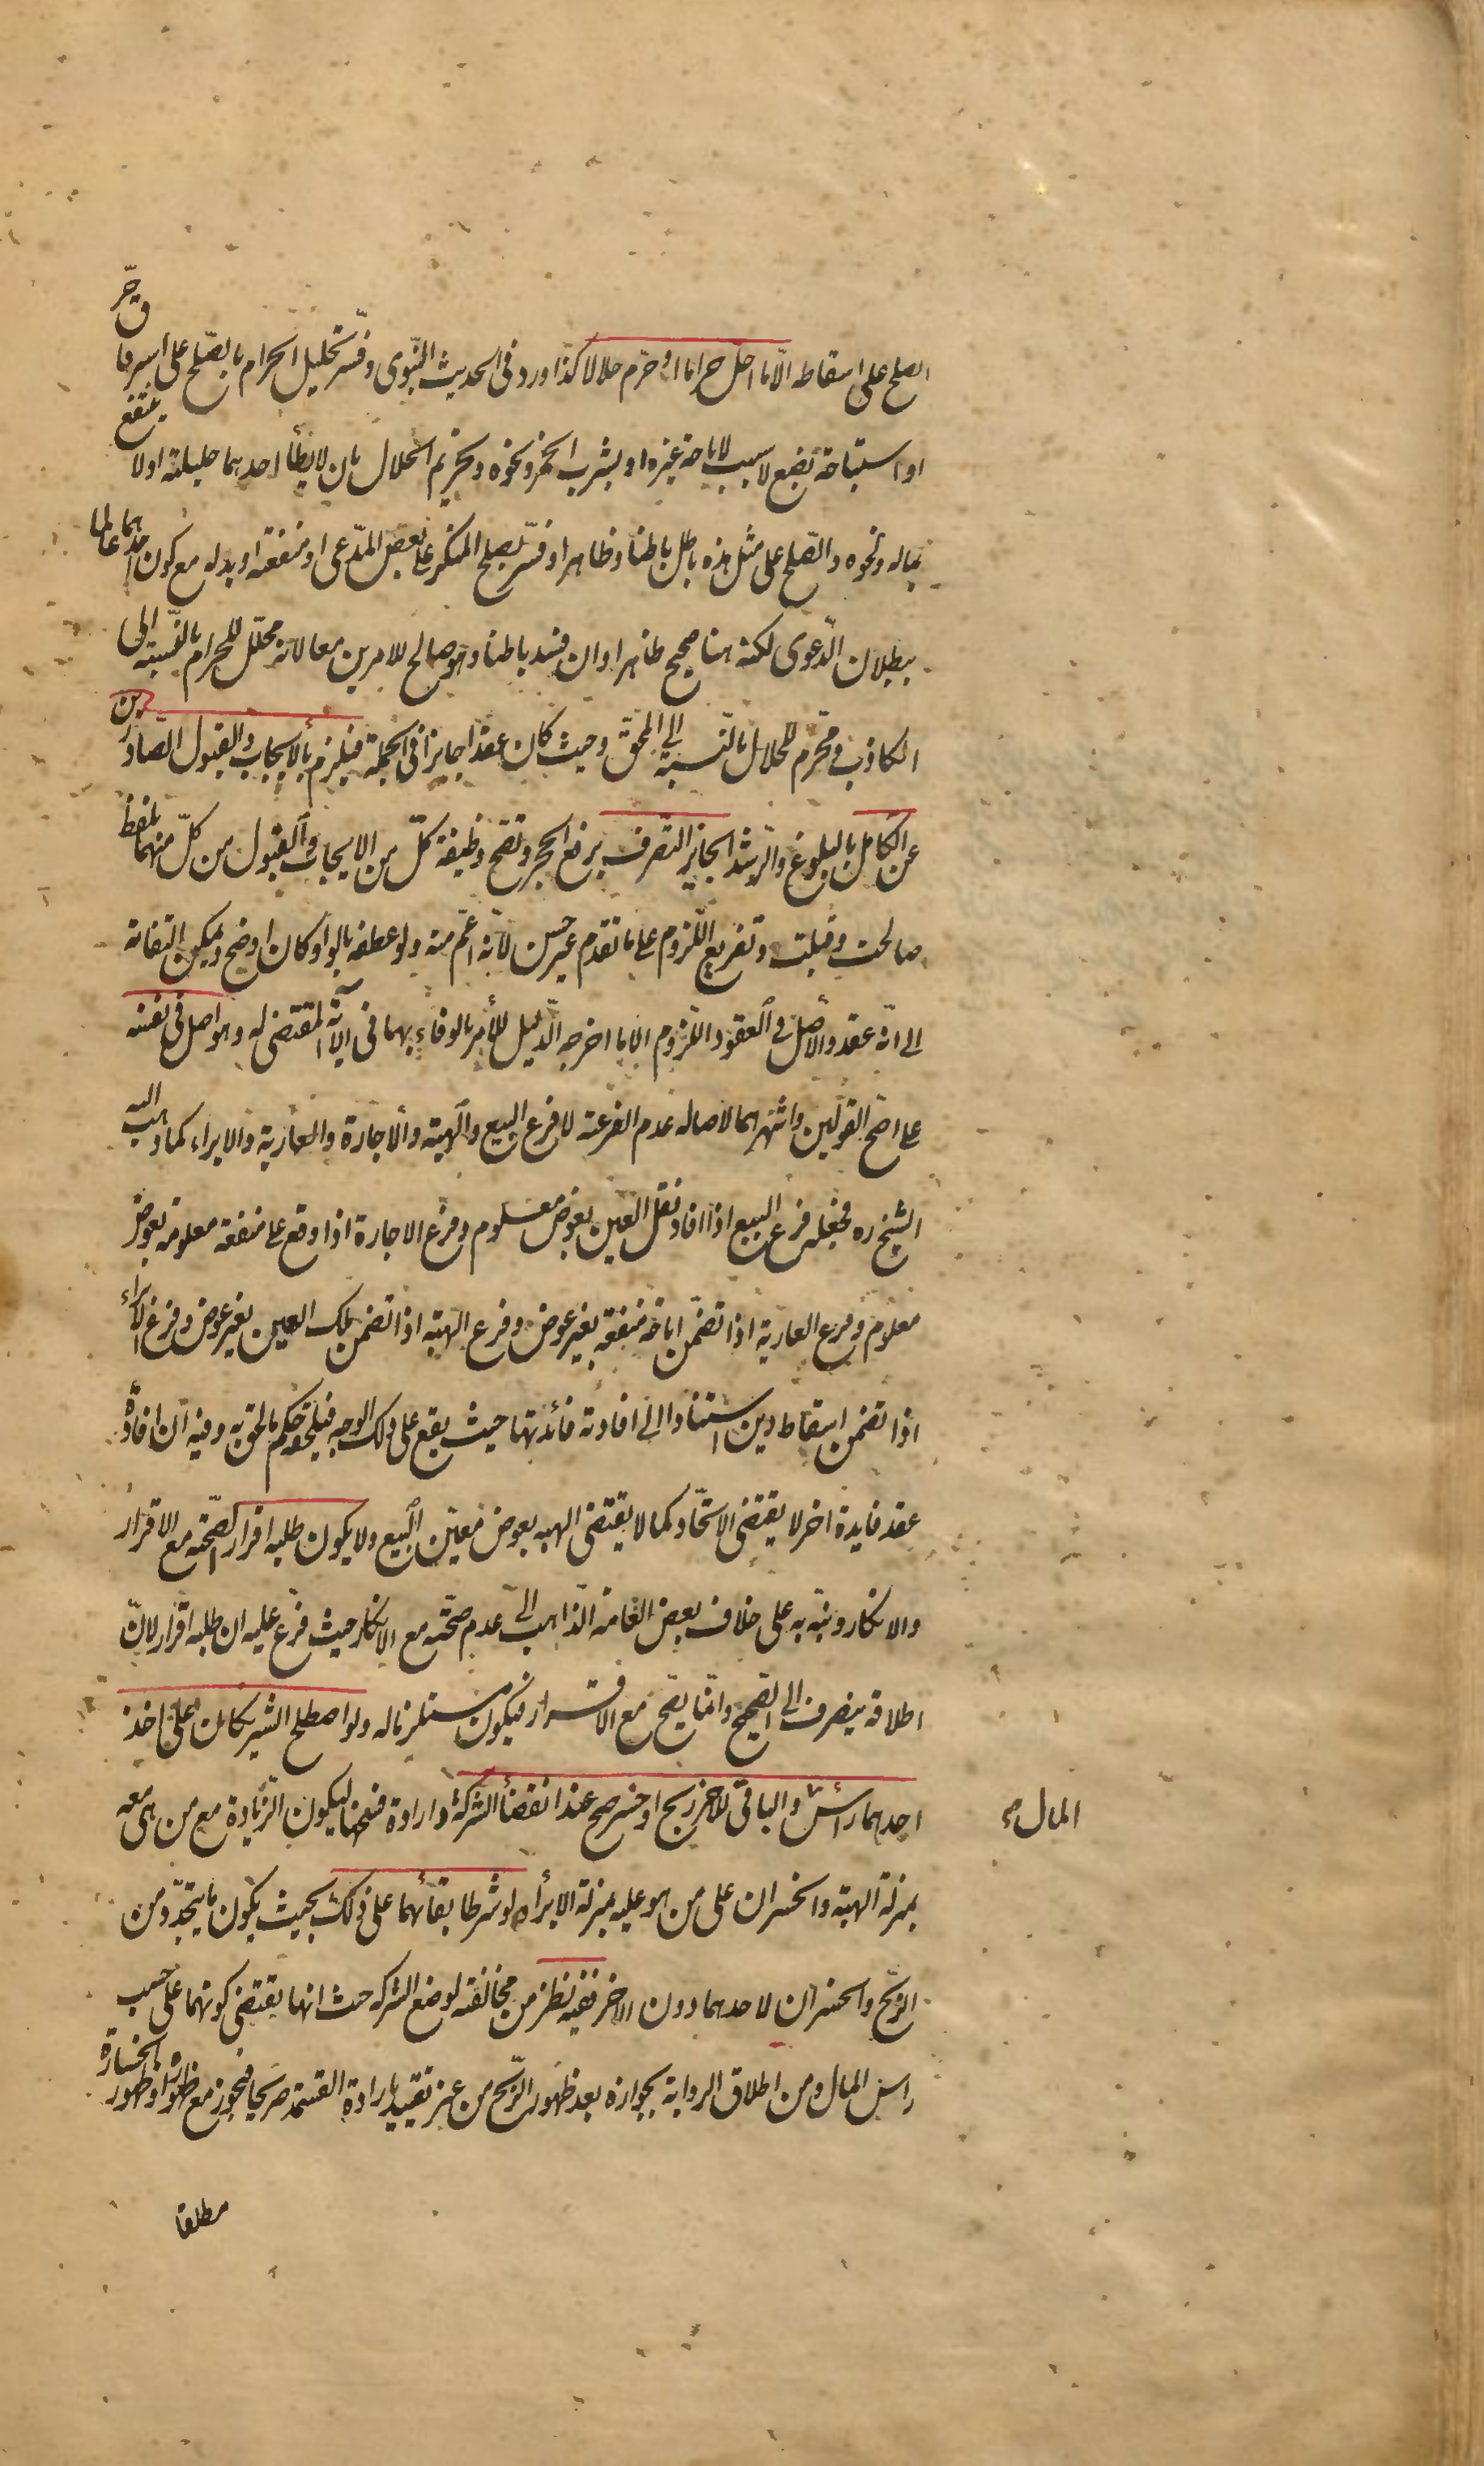 الصلح على اسقاطه الّا ما احل حراما او حرّم حلالا كذا ورد فى الحديث النّبوى وفسّر تحليل الحرام بالصّلح على استرقاق حرّ
او استباحة بضع لا سبب لاباحته غيره او بشرب الخمر ونحوه وتحريم الحلال بان لا يطأ احدهما حليلته او لا ينتفع
بماله ونحوه والصّلح على مثل هذه باطل باطنا وظاهرا او فسّر بصلح المنكر على بعض المدّعى او منفعته او بدله مع كون احدهما عالما
ببطلان الدّعوى لكنه هنا صحيح ظاهرا وان فسد باطنا وهو صالح للامرين معا لانه محلّل للحرام بالنّسبة الى
الكاذب ومحرّم للحلال بالنّسبة الى المحقّ وحيث كان عقدا جايزا فى الجملة فيلزم بالايجاب والقبول الصّادرين
عن الكامل بالبلوغ والرّشد الجايز التصرف برفع الحجر وتصح وظيفة كلّ من الايجاب والقبول من كلّ منهما بلفظ
صالحت وقبلت وتفريع اللّزوم على ما تقدم غير حسن لانّه اعمّ منه ولو عطفه بالواو كان اوضح ويمكن التفاته
الى انّه عقد والاصل فى العقود اللّزوم الا ما اخرجه الدّليل للأمر بالوفاء بهما فى الآية المقتضى له وهو اصل فى نفسه
على اصحّ القولين واشهرهما لاصاله عدم الفرعية لا فرع البيع والهبة والاجارة والعارية والابراء كما ذهب اليه
الشيخ ره فجعله فرع البيع اذا افاد نقل العين بعوض معلوم وفرع الاجارة اذا وقع على منفعة معلومة بعوض
معلوم وفرع العارية اذا تضمّن اباحة منفعة بغير عوض وفرع الهبة اذا تضمن ملك العين بغير عوض وفرع الابراء
اذا تضمن اسقاط دين استنادا الى افادته فائدتها حيث يقع على ذلك الوجه فيلحقه حكم ما لحق به وفيه انّ افادة
عقد فايدة اخر لا يقتضى الاتّحاد كما لا يقتضى الهبه بعوض معيّن البيع ولا يكون طلبه اقرار لصحّته مع الاقرار
والانكار ونبّه به على خلاف بعض العامه الذّاهب الى عدم صحّته مع الانكار حيث فرّع عليه ان طلبه اقرار لانّ
اطلاقه ينصرف الى الصّحيح وانّما يصح مع الاقرار فيكون مستلزما له ولو اصطلح الشريكان على اخذ
احدهما رأس والباقى للاخر ربح او خسر صح عند انقضاء الشركة وارادة فسخها ليكون الزّيادة مع من هى معه
المال
بمنزلة الهبة والخسران على من هو عليه بمنزلة الابراء ولو شرطا بقائهما على ذلك بحيث يكون ما يتجدّد من
الرّبح والخسران لاحدهما دون الاخر ففيه نظر من مخالفته لوضع الشركه حيث انها يقتضى كونهما على حسب
راس المال ومن اطلاق الرواية بجوازه بعد ظهور الرّبح من غير تقييد بارادة القسمة صريحا فيجوز مع ظهوره او ظهور الخسارة
مطلقا